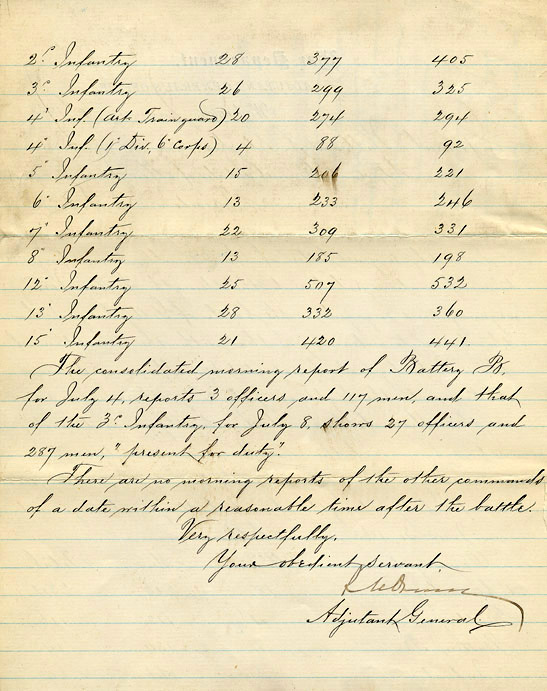 2d Infantry 28 377 405
3d Infantry 26 299 325
4" Inf. (Art. Train guard) 20 274 294
4" Inf. (1" Div, 6" Corps) 4 88 92
5" Infantry 15 206 221
6" Infantry 13 233 246
7" Infantry 22 309 331
8" Infantry 13 185 198
12" Infantry 25 507 532
13" Infantry 28 332 360
15" Infantry 21 420 441.
The consolidated morning report of Battery B,
for July 4, reports 3 officers and 117 men, and that
of the 3d Infantry, for July 8, shows 27 officers and
287 men, "present for duty".
There are no morning reports of the other commands
of a date within a reasonable time after the battle.
Very respectfully,
Your obedient servant
Adjutant General